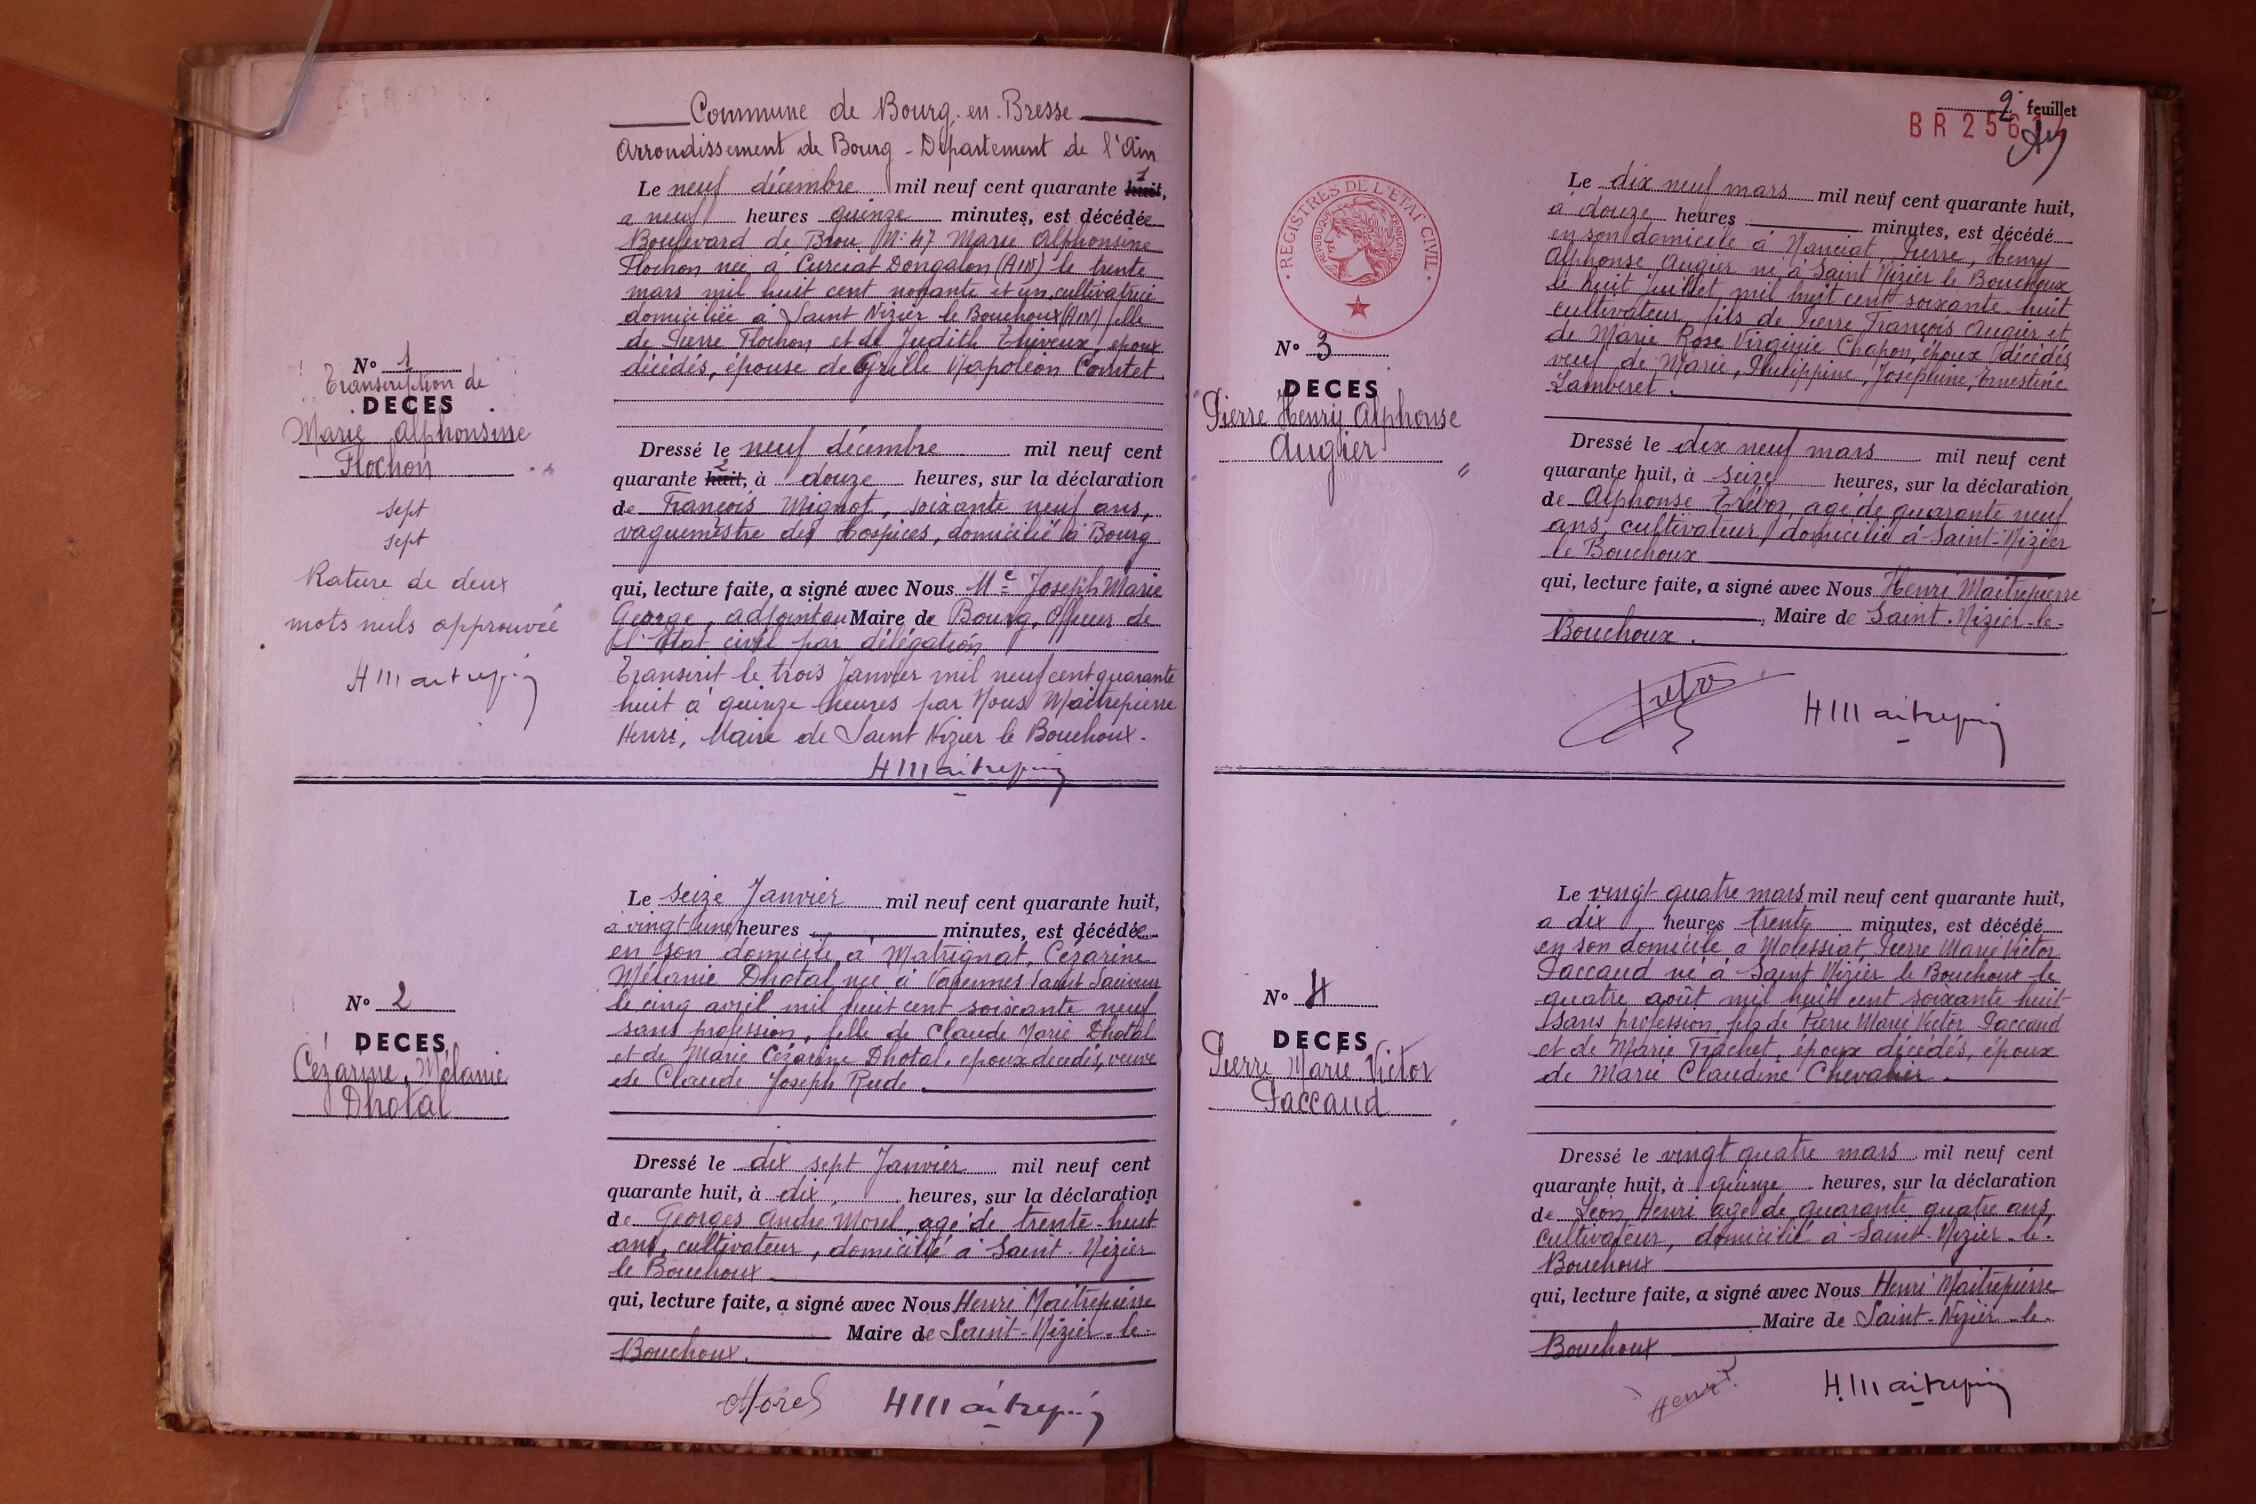 Commune de Bourg-en-Bresse
Arrondissement de Bourg - Département de l'Ain
Le neuf décembre mil neuf cent quarante huit, 1
a neuf heures quinze minutes, est décédée
Boulevard de Brou N: 47 Marie Alphonsine
Flochon née à Curciat Dongalon (AIN) le trente
mars mil huit cent nonante et un, cultivatrice
domiciliée à Saint Nizier le Bouchoux (AIN) fille
de Pierre Flochon et de Judith Theveux, époux
décédés, épouse de Cyrille Napoléon Convtet
N° 1
Transcription de
DECES
Marie Alphonsine
Flochon
sept
sept
Rature de deux
mots nuls approuvée
HMaitrepierre
Dressé le neuf décembre mil neuf cent
quarante huit, 2 à douze heures, sur la déclaration
de François Mignot, soixante neuf ans,
vaguemestre des Hospices, domicilié à Bourg
qui, lecture faite, a signé avec Nous Me Joseph Marie
George, adjoint au Maire de Bourg, Officier de
l'Etat civil par délégation
Transcrit le trois Janvier mil neuf cent quarante
huit à quinze heures par Nous Maitrepierre
Henri, Maire de Saint Nizier le Bouchoux.
HMaitrepierre
Le seize Janvier mil neuf cent quarante huit,
à vingt une heures minutes, est décédée
en son domicile à Matrignat, Cézarine
Mélanie Dhotal née à Varennes Saint Sauveur
le cinq avril mil huit cent soixante neuf
sans profession, fille de Claude Marie Dhotal
et de Marie Cézarine Dhotal, époux décédés, veuve
de Claude Joseph Rude
N° 2
DECES
Cézarine, Mélanie
Dhotal
Dressé le dix sept Janvier mil neuf cent
quarante huit, à dix heures, sur la déclaration
de Georges André Morel, agé de trente-huit
ans, cultivateur, domicilié à Saint-Nizier
le Bouchoux
qui, lecture faite, a signé avec Nous Henri Maitrepierre
Maire de Saint-Nizier-le-
Bouchoux.
Morel HMaitrepierre
2 feuillet
BR 256
REGISTRES DE L'ETAT CIVIL
REPUBLIQUE FRANÇAISE
Le dix neuf mars mil neuf cent quarante huit,
a douze heures minutes, est décédé
en son domicile à Manciat, Pierre, Henry
Alphonse Augier né à Saint Nizier le Bouchoux
le huit juillet mil huit cent soixante-huit
cultivateur, fils de Pierre François Augier et
de Marie Rose Virginie Chapon, époux décédés,
veuf de Marie, Philippine, Joséphine, Ernestine
Lamberet.
N° 3
DECES
Pierre Henry Alphonse
Augier
Dressé le dix neuf mars mil neuf cent
quarante huit, à seize heures, sur la déclaration
de Alphonse Trévoz, agé de quarante neuf
ans, cultivateur, domicilié à Saint-Nizier
le Bouchoux
qui, lecture faite, a signé avec Nous Henri Maitrepierre
, Maire de Saint-Nizier-le-
Bouchoux.
HMaitrepierre
Le vingt-quatre mars mil neuf cent quarante huit,
a dix heures trente minutes, est décédé
en son domicile a Molessiat, Pierre Marie Victor
Paccaud né à Saint Nizier le Bouchoux le
quatre août mil huit cent soixante huit
sans profession, fils de Pierre Marie Victor Paccaud
et de Marie Trachet, époux décédés, époux
de Marie Claudine Chevalier.
N° 4
DECES
Pierre Marie Victor
Paccaud
Dressé le vingt quatre mars mil neuf cent
quarante huit, à quinze heures, sur la déclaration
de Léon Henri agé de quarante quatre ans,
cultivateur, domicilié à Saint-Nizier-le-
Bouchoux
qui, lecture faite, a signé avec Nous Henri Maitrepierre
Maire de Saint-Nizier-le-
Bouchoux
Henri H.Maitrepierre